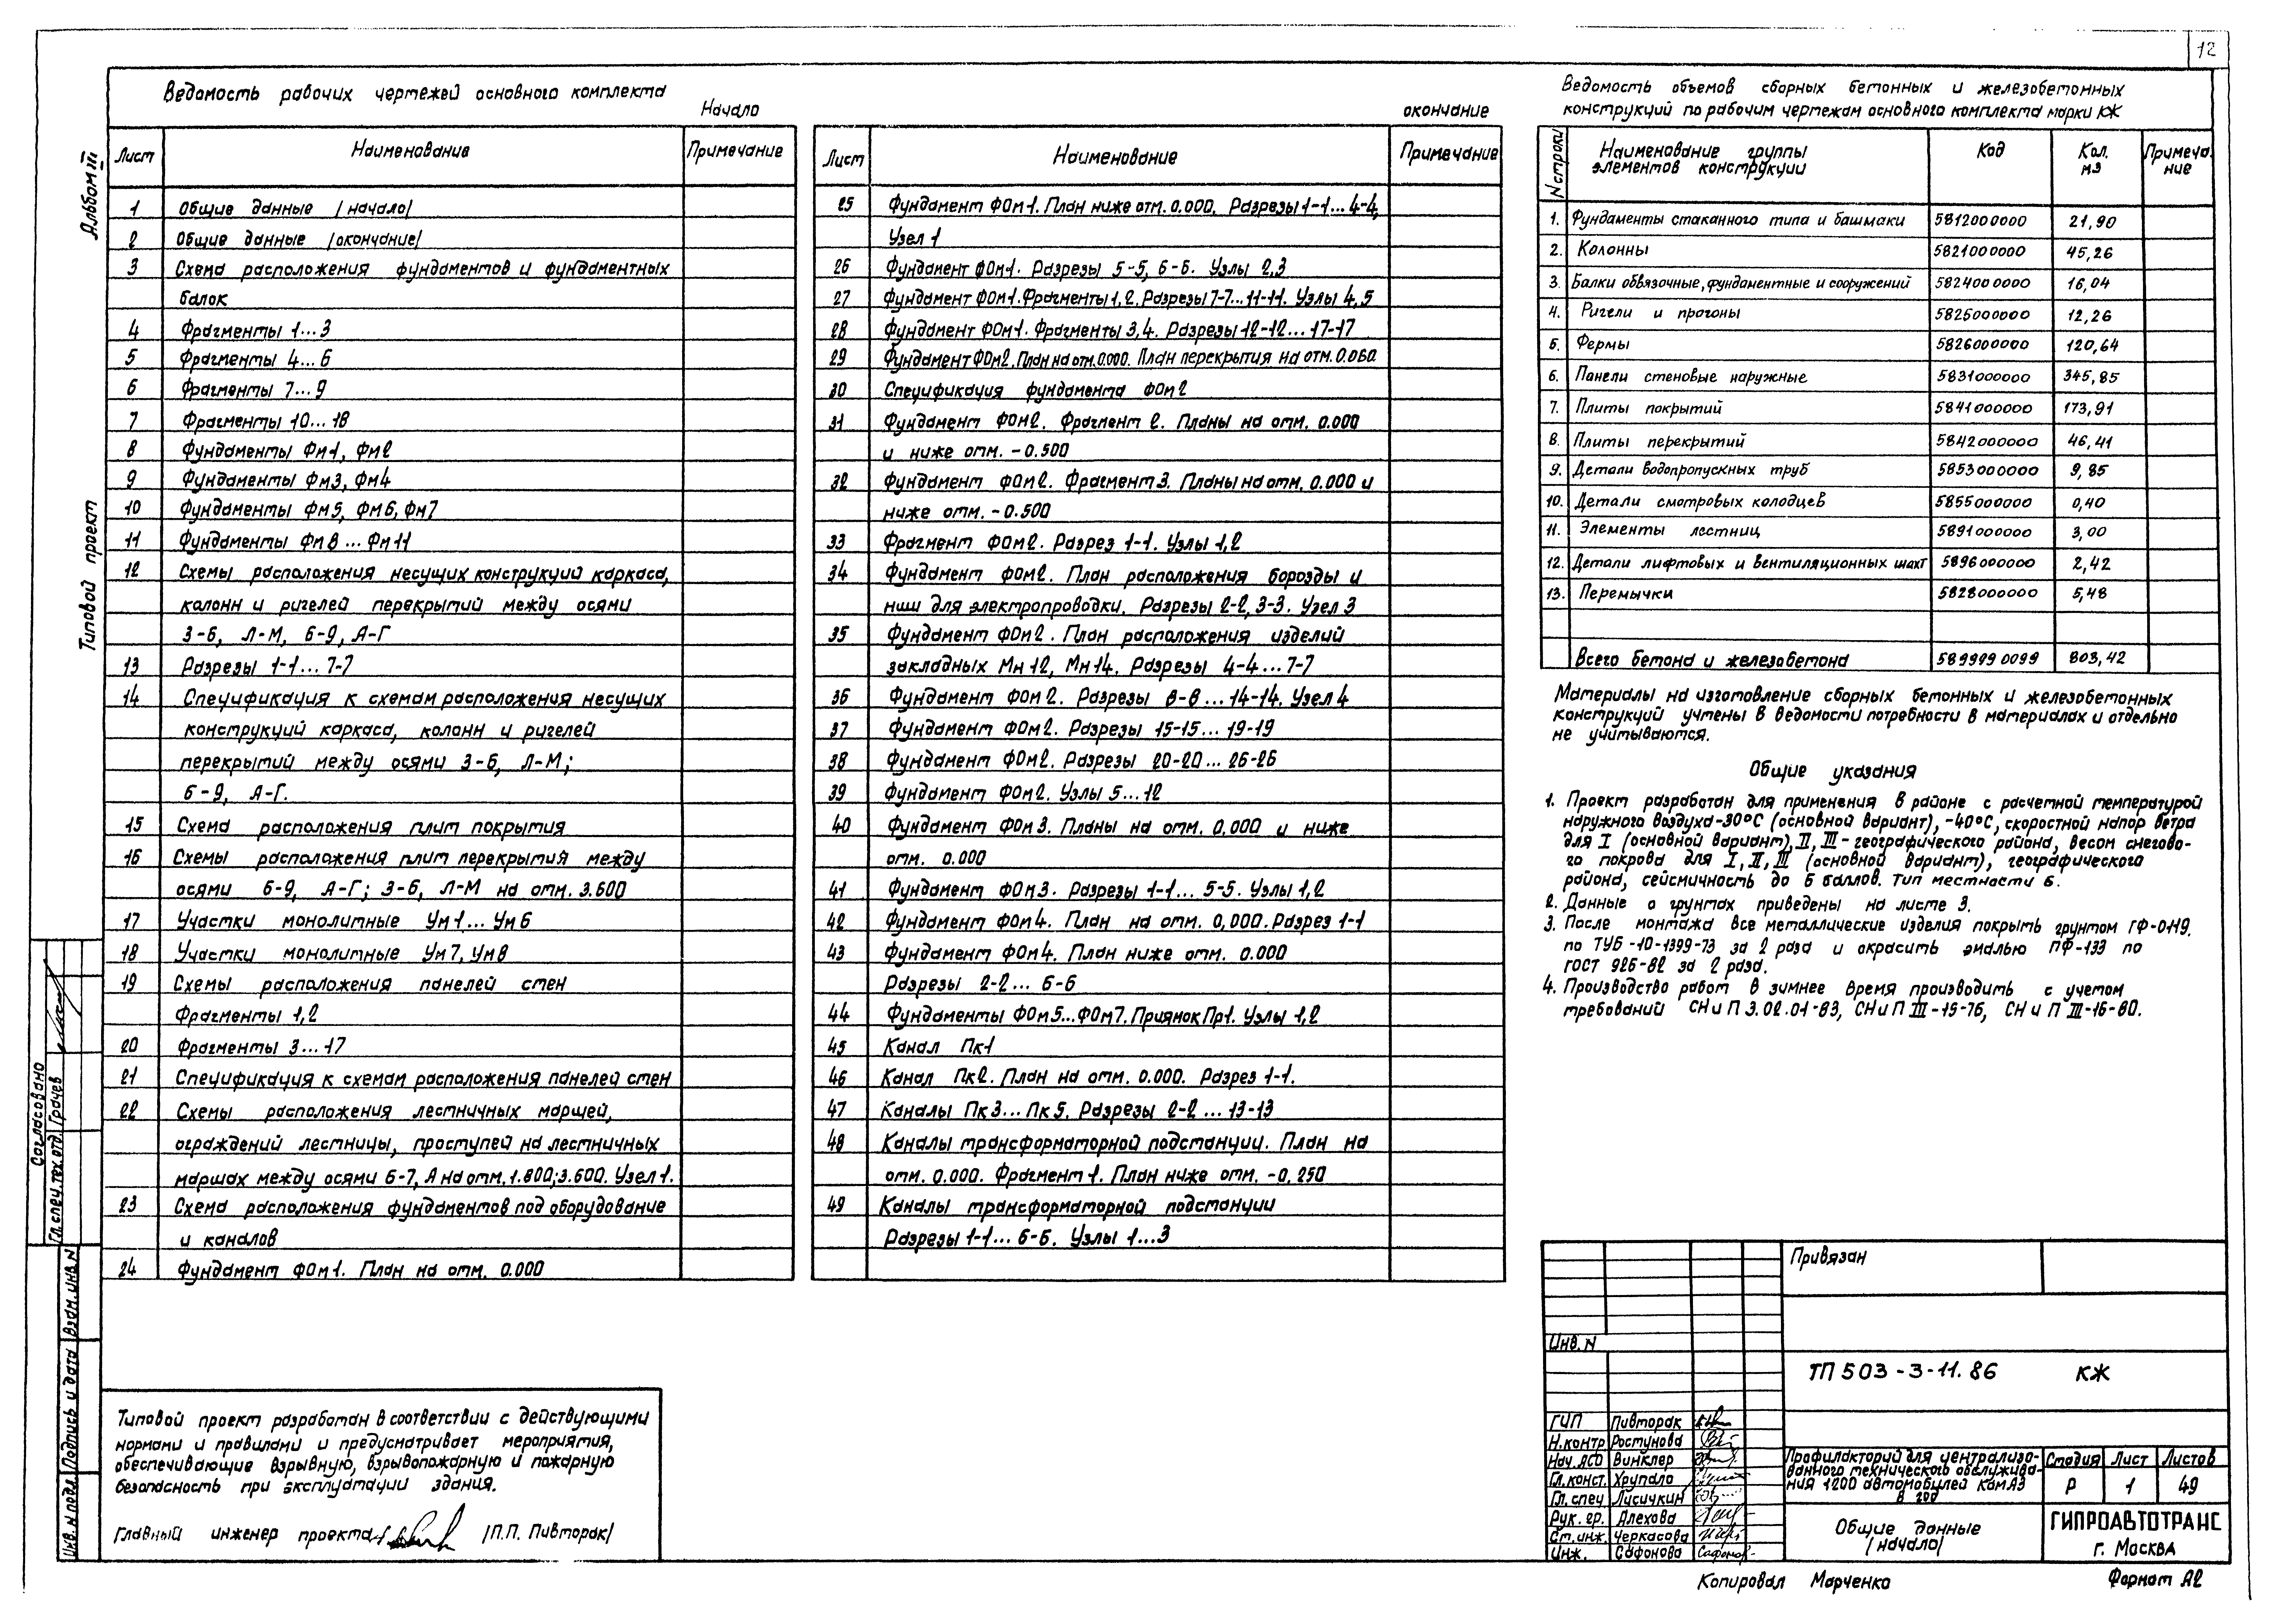 12
Альбом III
Типовой проект
Ведомость рабочих чертежей основного комплекта
Начало
Лист Наименование Примечание
1 Общие данные /начало/
2 Общие данные /окончание/
3 Схема расположения фундаментов и фундаментных
балок
4 Фрагменты 1...3
5 Фрагменты 4...6
6 Фрагменты 7...9
7 Фрагменты 10...18
8 Фундаменты Фм1, Фм2
9 Фундаменты Фм3, Фм4
10 Фундаменты Фм5, Фм6, Фм7
11 Фундаменты Фм8...Фм11
12 Схемы расположения несущих конструкций каркаса,
колонн и ригелей перекрытий между осями
3-6, Л-М, 6-9, А-Г
13 Разрезы 1-1...7-7
14 Спецификация к схемам расположения несущих
конструкций каркаса, колонн и ригелей
перекрытий между осями 3-6, Л-М;
6-9, А-Г.
15 Схема расположения плит покрытия
16 Схемы расположения плит перекрытия между
осями 6-9, А-Г; 3-6, Л-М на отм. 3.600
17 Участки монолитные Ум1...Ум6
18 Участки монолитные Ум7, Ум8
19 Схемы расположения панелей стен
Фрагменты 1,2
20 Фрагменты 3...17
21 Спецификация к схемам расположения панелей стен
22 Схемы расположения лестничных маршей,
ограждений лестницы, проступей на лестничных
маршах между осями 6-7, А на отм. 1.800; 3.600. Узел 1.
23 Схема расположения фундаментов под оборудование
и каналов
24 Фундамент ФОм1. План на отм. 0.000
окончание
Лист Наименование Примечание
25 Фундамент ФОм1. План ниже отм. 0.000. Разрезы 1-1...4-4,
Узел 1
26 Фундамент ФОм1. Разрезы 5-5, 6-6. Узлы 2,3
27 Фундамент ФОм1. Фрагменты 1,2. Разрезы 7-7...11-11. Узлы 4,5
28 Фундамент ФОм1. Фрагменты 3,4. Разрезы 12-12...17-17
29 Фундамент ФОм2. План на отм. 0.000. План перекрытия на отм. 0.060
30 Спецификация фундамента ФОм2
31 Фундамент ФОм2. Фрагмент 2. Планы на отм. 0.000
и ниже отм. -0.500
32 Фундамент ФОм2. Фрагмент 3. Планы на отм. 0.000 и
ниже отм. -0.500
33 Фрагмент ФОм2. Разрез 1-1. Узлы 1,2
34 Фундамент ФОм2. План расположения борозды и
ниш для электропроводки. Разрезы 2-2, 3-3. Узел 3
35 Фундамент ФОм2. План расположения изделий
закладных Мн12, Мн14. Разрезы 4-4...7-7
36 Фундамент ФОм2. Разрезы 8-8...14-14. Узел 4
37 Фундамент ФОм2. Разрезы 15-15...19-19
38 Фундамент ФОм2. Разрезы 20-20...26-26
39 Фундамент ФОм2. Узлы 5...12
40 Фундамент ФОм3. Планы на отм. 0.000 и ниже
отм. 0.000
41 Фундамент ФОм3. Разрезы 1-1...5-5. Узлы 1,2
42 Фундамент ФОм4. План на отм. 0,000. Разрез 1-1
43 Фундамент ФОм4. План ниже отм. 0.000
Разрезы 2-2...6-6
44 Фундаменты ФОм5...ФОм7. Приямок Пр1. Узлы 1,2
45 Канал Пк1
46 Канал Пк2. План на отм. 0.000. Разрез 1-1.
47 Каналы Пк3...Пк5. Разрезы 2-2...13-13
48 Каналы трансформаторной подстанции. План на
отм. 0.000. Фрагмент 1. План ниже отм. -0.250
49 Каналы трансформаторной подстанции
Разрезы 1-1...6-6. Узлы 1...3
Ведомость объемов сборных бетонных и железобетонных
конструкций по рабочим чертежам основного комплекта марки КЖ
N строки Наименование группы элементов конструкции Код Кол. м3 Примечание
1. Фундаменты стаканного типа и башмаки 5812000000 21,90
2. Колонны 5821000000 45,26
3. Балки обвязочные, фундаментные и сооружений 5824000000 16,04
4. Ригели и прогоны 5825000000 12,26
5. Фермы 5826000000 120,64
6. Панели стеновые наружные 5831000000 345,85
7. Плиты покрытий 5841000000 173,91
8. Плиты перекрытий 5842000000 46,41
9. Детали водопропускных труб 5853000000 9,85
10. Детали смотровых колодцев 5855000000 0,40
11. Элементы лестниц 5891000000 3,00
12. Детали лифтовых и вентиляционных шахт 5896000000 2,42
13. Перемычки 5828000000 5,48
Всего бетона и железобетона 5899990099 803,42
Материалы на изготовление сборных бетонных и железобетонных
конструкций учтены в ведомости потребности в материалах и отдельно
не учитываются.
Общие указания
1. Проект разработан для применения в районе с расчетной температурой
наружного воздуха -30°С (основной вариант), -40°С, скоростной напор ветра
для I (основной вариант), II, III - географического района, весом снегово-
го покрова для I, II, III (основной вариант), географического
района, сейсмичность до 6 баллов. Тип местности Б.
2. Данные о грунтах приведены на листе 3.
3. После монтажа все металлические изделия покрыть грунтом ГФ-0119.
по ТУ6-10-1399-73 за 2 раза и окрасить эмалью ПФ-133 по
ГОСТ 926-82 за 2 раза.
4. Производство работ в зимнее время производить с учетом
требований СНиП 3.02.01-83, СНиП III-15-76, СНиП III-16-80.
Согласовано
Гл. спец. тех. отд. Грачев
Инв. N подл. Подпись и дата Взам. инв. N
Типовой проект разработан в соответствии с действующими
нормами и правилами и предусматривает мероприятия,
обеспечивающие взрывную, взрывопожарную и пожарную
безопасность при эксплуатации здания.
Главный инженер проекта /П.П. Пивторак/
Привязан
Инв. N
ТП 503-3-11.86 КЖ
ГИП Пивторак
Н.контр Ростунова
Нач. АСО Винклер
Гл.конст. Хрупало
Гл. спец. Лисичкин
Рук. гр. Алехова
Ст. инж. Черкасова
Инж. Сафонова
Профилакторий для централизо-
ванного технического обслужива-
ния 1200 автомобилей КамАЗ
в год
Стадия Лист Листов
Р 1 49
Общие данные
/начало/
ГИПРОАВТОТРАНС
г. Москва
Копировал Марченко
Формат А2